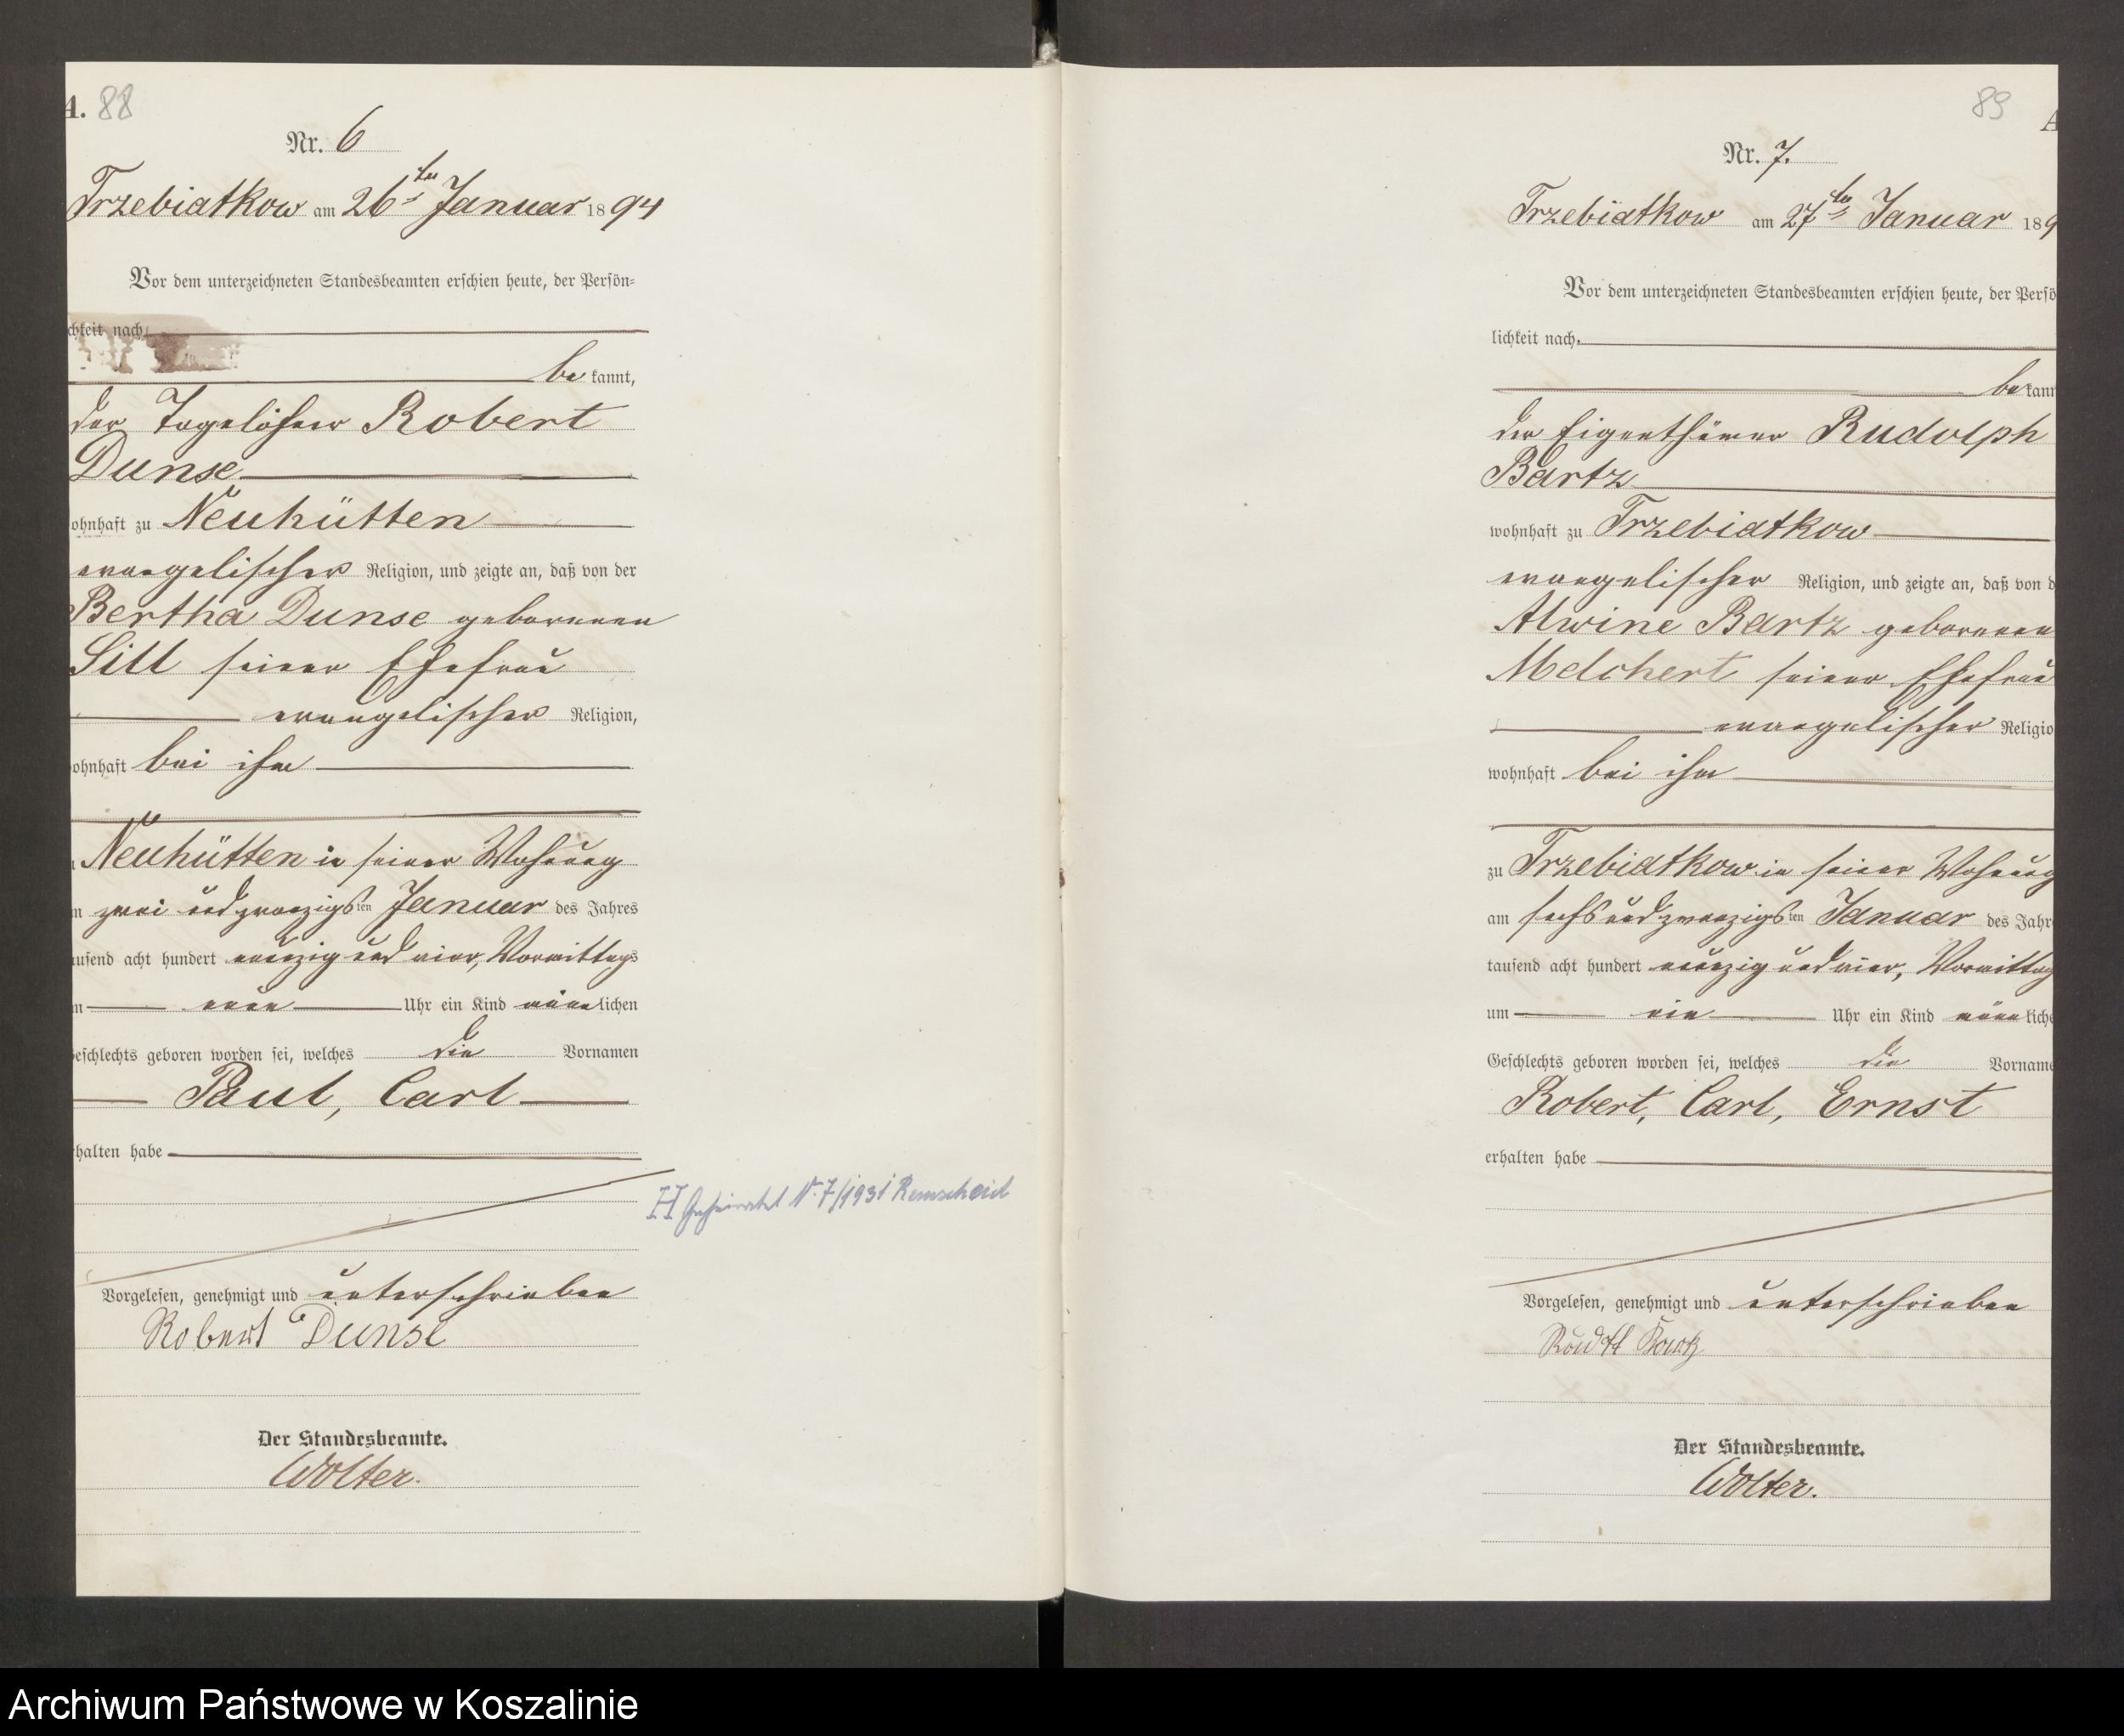 A. 88
Nr. 6
Trzebiatkow am 26ten Januar 1894
Vor dem unterzeichneten Standesbeamten erschien heute, der Persön-
chkeit nach
be kannt,
der Tagelöhner Robert
Dunse
ohnhaft zu Neuhütten
evangelischer Religion, und zeigte an, daß von der
Bertha Dunse geborenen
Sill seiner Ehefrau
evangelischer Religion,
ohnhaft bei ihm
Neuhütten in seiner Wohnung
zwei und zwanzigsten Januar des Jahres
ausend acht hundert neunzig und vier, Vormittags
neun Uhr ein Kind männlichen
eschlechts geboren worden sei, welches die Vornamen
Paul, Carl
halten habe
H Geheiratet N. 7/1931 Remscheid
Vorgelesen, genehmigt und unterschrieben
Robert Dunse
Der Standesbeamte.
Wolter.
89 A
Nr. 7.
Trzebiatkow am 27ten Januar 189
Vor dem unterzeichneten Standesbeamten erschien heute, der Persö
lichkeit nach
be kann
der Eigenthümer Rudolph
Bartz
wohnhaft zu Trzebiatkow
evangelischer Religion, und zeigte an, daß von d
Alwine Bartz geborenen
Melchert seiner Ehefrau
evangelischer Religio
wohnhaft bei ihm
zu Trzebiatkow in seiner Wohnung
am sechs und zwanzigsten Januar des Jahre
tausend acht hundert neunzig und vier, Vormittag
um ein Uhr ein Kind männ liche
Geschlechts geboren worden sei, welches die Vorname
Robert, Carl, Ernst
erhalten habe
Vorgelesen, genehmigt und unterschrieben
Der Standesbeamte.
Wolter.
Archiwum Państwowe w Koszalinie